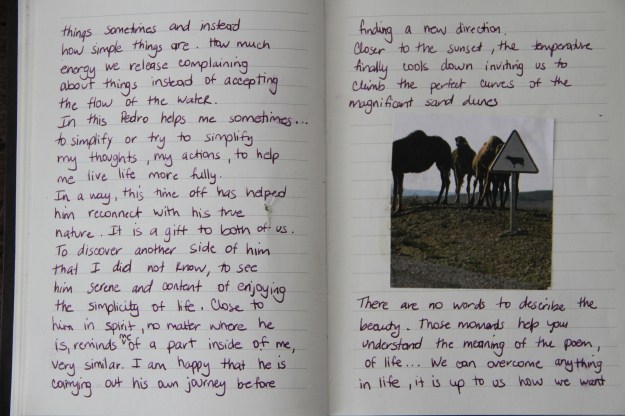 things sometimes and instead
how simple things are. How much
energy we release complaining
about things instead of accepting
the flow of the water.
In this Pedro helps me sometimes...
to simplify or try to simplify
my thoughts, my actions, to help
me live life more fully.
In a way, this time off has helped
him reconnect with his true
nature. It is a gift to both of us.
To discover another side of him
that I did not know, to see
him serene and content of enjoying
the simplicity of life. Close to
him in spirit, no matter where he
is, reminds me of a part inside of me,
very similar. I am happy that he is
carrying out his own journey before
finding a new direction.
Closer to the sunset, the temperature
finally cools down inviting us to
climb the perfect curves of the
magnificent sand dunes
There are no words to describe the
beauty. Those moments help you
understand the meaning of the poem,
of life... We can overcome anything
in life, it is up to us how we want